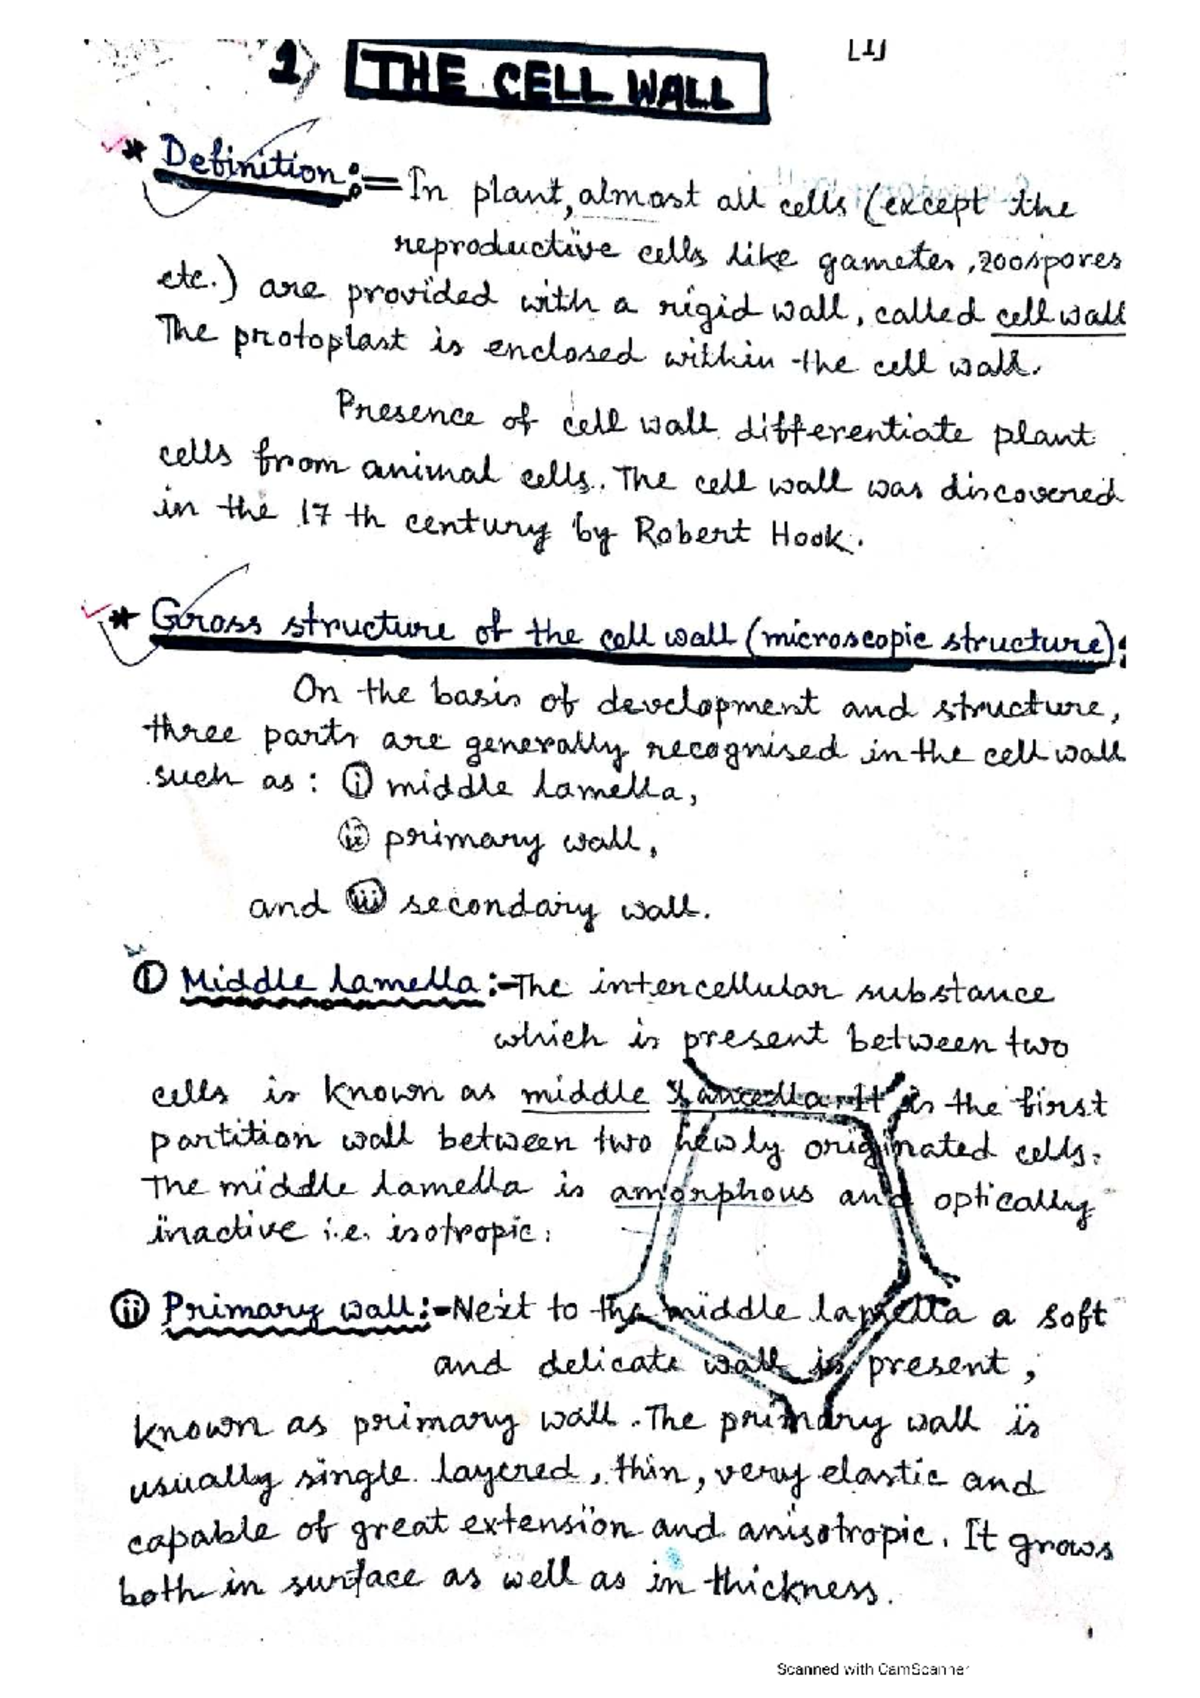 [1]
1) THE CELL WALL
* Definition:= In plant, almost all cells (except the
reproductive cells like gametes, zoospores
etc.) are provided with a rigid wall, called cell wall
The protoplast is enclosed within the cell wall.
Presence of cell wall differentiate plant
cells from animal cells. The cell wall was discovered
in the 17 th century by Robert Hook.
* Gross structure of the cell wall (microscopic structure):
On the basis of development and structure,
three parts are generally recognised in the cell wall
such as: (i) middle lamella,
(ii) primary wall,
and (iii) secondary wall.
(i) Middle lamella:- The intercellular substance
which is present between two
cells is known as middle lamella. It is the first
partition wall between two newly originated cells.
The middle lamella is amorphous and optically
inactive i.e. isotropic.
(ii) Primary wall:- Next to the middle lamella a soft
and delicate wall is present,
known as primary wall. The primary wall is
usually single layered, thin, very elastic and
capable of great extension and anisotropic. It grows
both in surface as well as in thickness.
Scanned with CamScanner